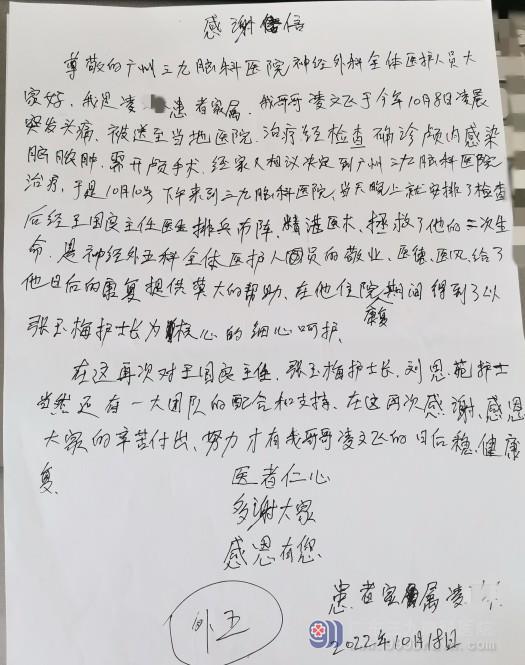 感谢信
尊敬的广州三九脑科医院神经外科全体医护人员大
家好，我是凌 患者家属。我哥哥凌文飞于今年10月8日凌晨
突发头痛，被送至当地医院，治疗经检查确诊颅内感染
脑脓肿，需开颅手术，经家人相议决定到广州三九脑科医院
治疗，于是10月10号下午来到三九脑科医院，当天晚上就安排了检查
后经王国良主任医生排兵布阵，精湛医术，拯救了他的二次生
命，是神经外五科全体医护人员的敬业、医德、医风，给了
他日后的康复提供莫大的帮助，在他住院康复期间得到了以
张玉梅护士长为核心的细心呵护。
在这再次对王国良主任，张玉梅护士长，刘恩苑护士
当然还有一大团队的配合和支持，在这再次感谢，感恩
大家的辛苦付出，努力才有我哥哥凌文飞的日后稳，健康
复。
医者仁心
多谢大家
感恩有您
患者家属凌
外五
2022年10月18日